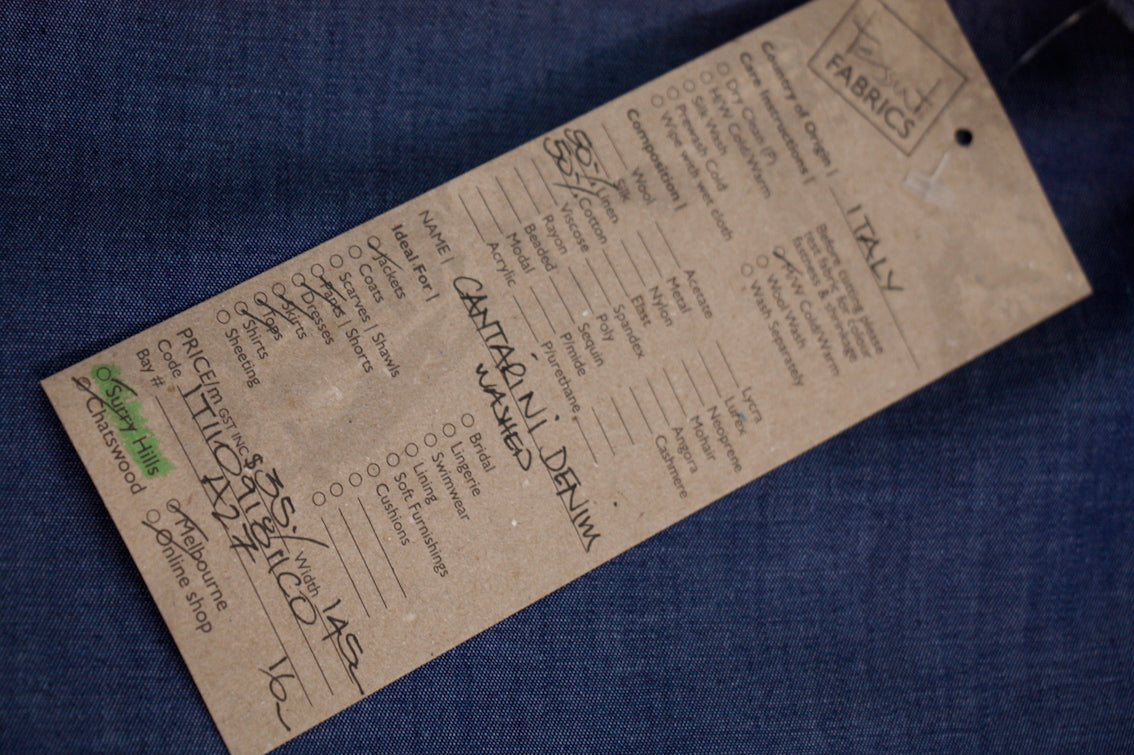 Tessuti
FABRICS
Country of Origin | ITALY
Care Instructions |
Before cutting please
test fabric for colour
fastness & shrinkage
Dry Clean (P)
H/W Cold/Warm
Silk Wash
Prewash Cold
Wipe with wet cloth
M/W Cold/Warm
Wool Wash
Wash Separately
Composition |
Wool
Silk
50% Linen
50% Cotton
Viscose
Rayon
Beaded
Modal
Acrylic
Acetate
Metal
Nylon
Elast
Spandex
Poly
Sequin
P/mide
P/urethane
Lycra
Lurex
Neoprene
Mohair
Angora
Cashmere
NAME | CANTARINI DENIM
WASHED
Ideal For |
Jackets
Coats
Scarves | Shawls
Pants | Shorts
Dresses
Skirts
Tops
Shirts
Sheeting
Bridal
Lingerie
Swimwear
Lining
Soft Furnishings
Cushions
PRICE/m GST INC $35. Width 145
Code
Bay # A27
Surry Hills
Chatswood
Melbourne
Online shop